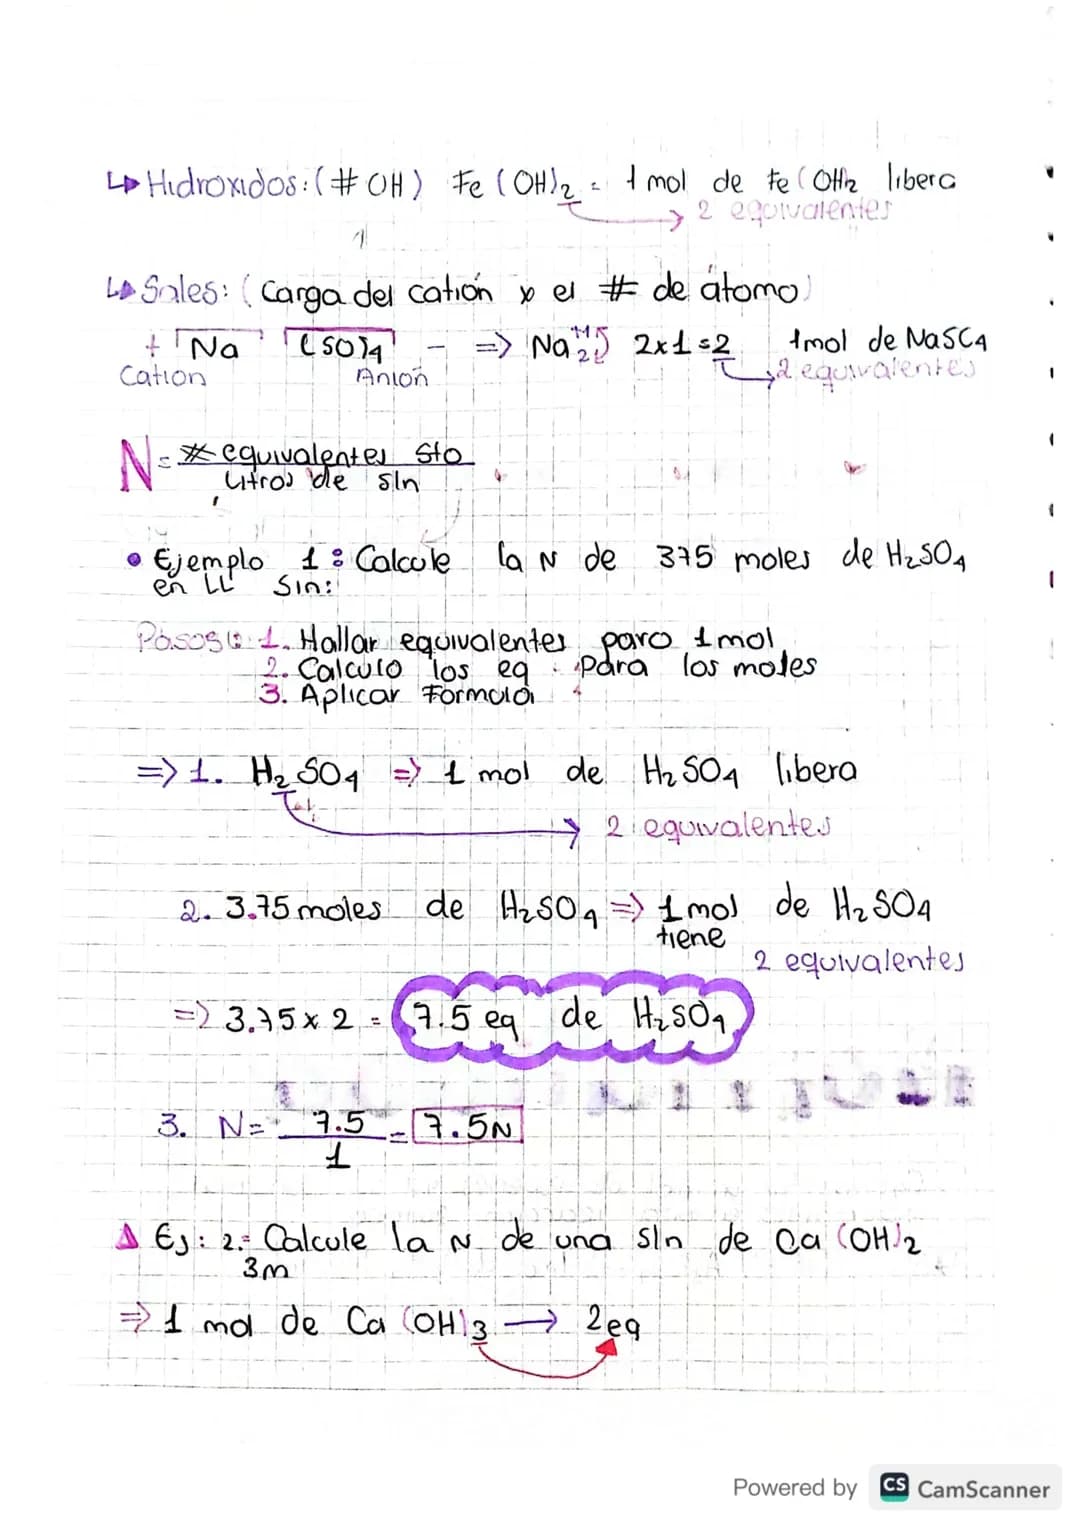 ↳ Hidroxidos: (# OH) Fe (OH)2 = 1 mol de Fe (OH)2 libera
→ 2 equivalentes
↳ Sales: (Carga del catión x el # de átomo)
+ Na (SO)4 - => Na2+1 2x1=2 1mol de NaSO4
Catión Anión → 2 equivalentes
N = # equivalentes Sto
Litros de sln
• Ejemplo 1: Calcule la N de 375 moles de H2SO4
en LL Sln:
Pasos: 1. Hallar equivalentes para 1 mol
2. Calculo los eq para los moles
3. Aplicar Formula
=> 1. H2SO4 => 1 mol de H2SO4 libera
→ 2 equivalentes
2. 3.75 moles de H2SO4 => 1 mol de H2SO4
tiene
2 equivalentes
=> 3.75 x 2 = 7.5 eq de H2SO4
3. N = 7.5 = 7.5N
1
Ej: 2.= Calcule la N de una sln de Ca (OH)2
3m
=> 1 mol de Ca (OH)3 → 2eq
Powered by CS CamScanner